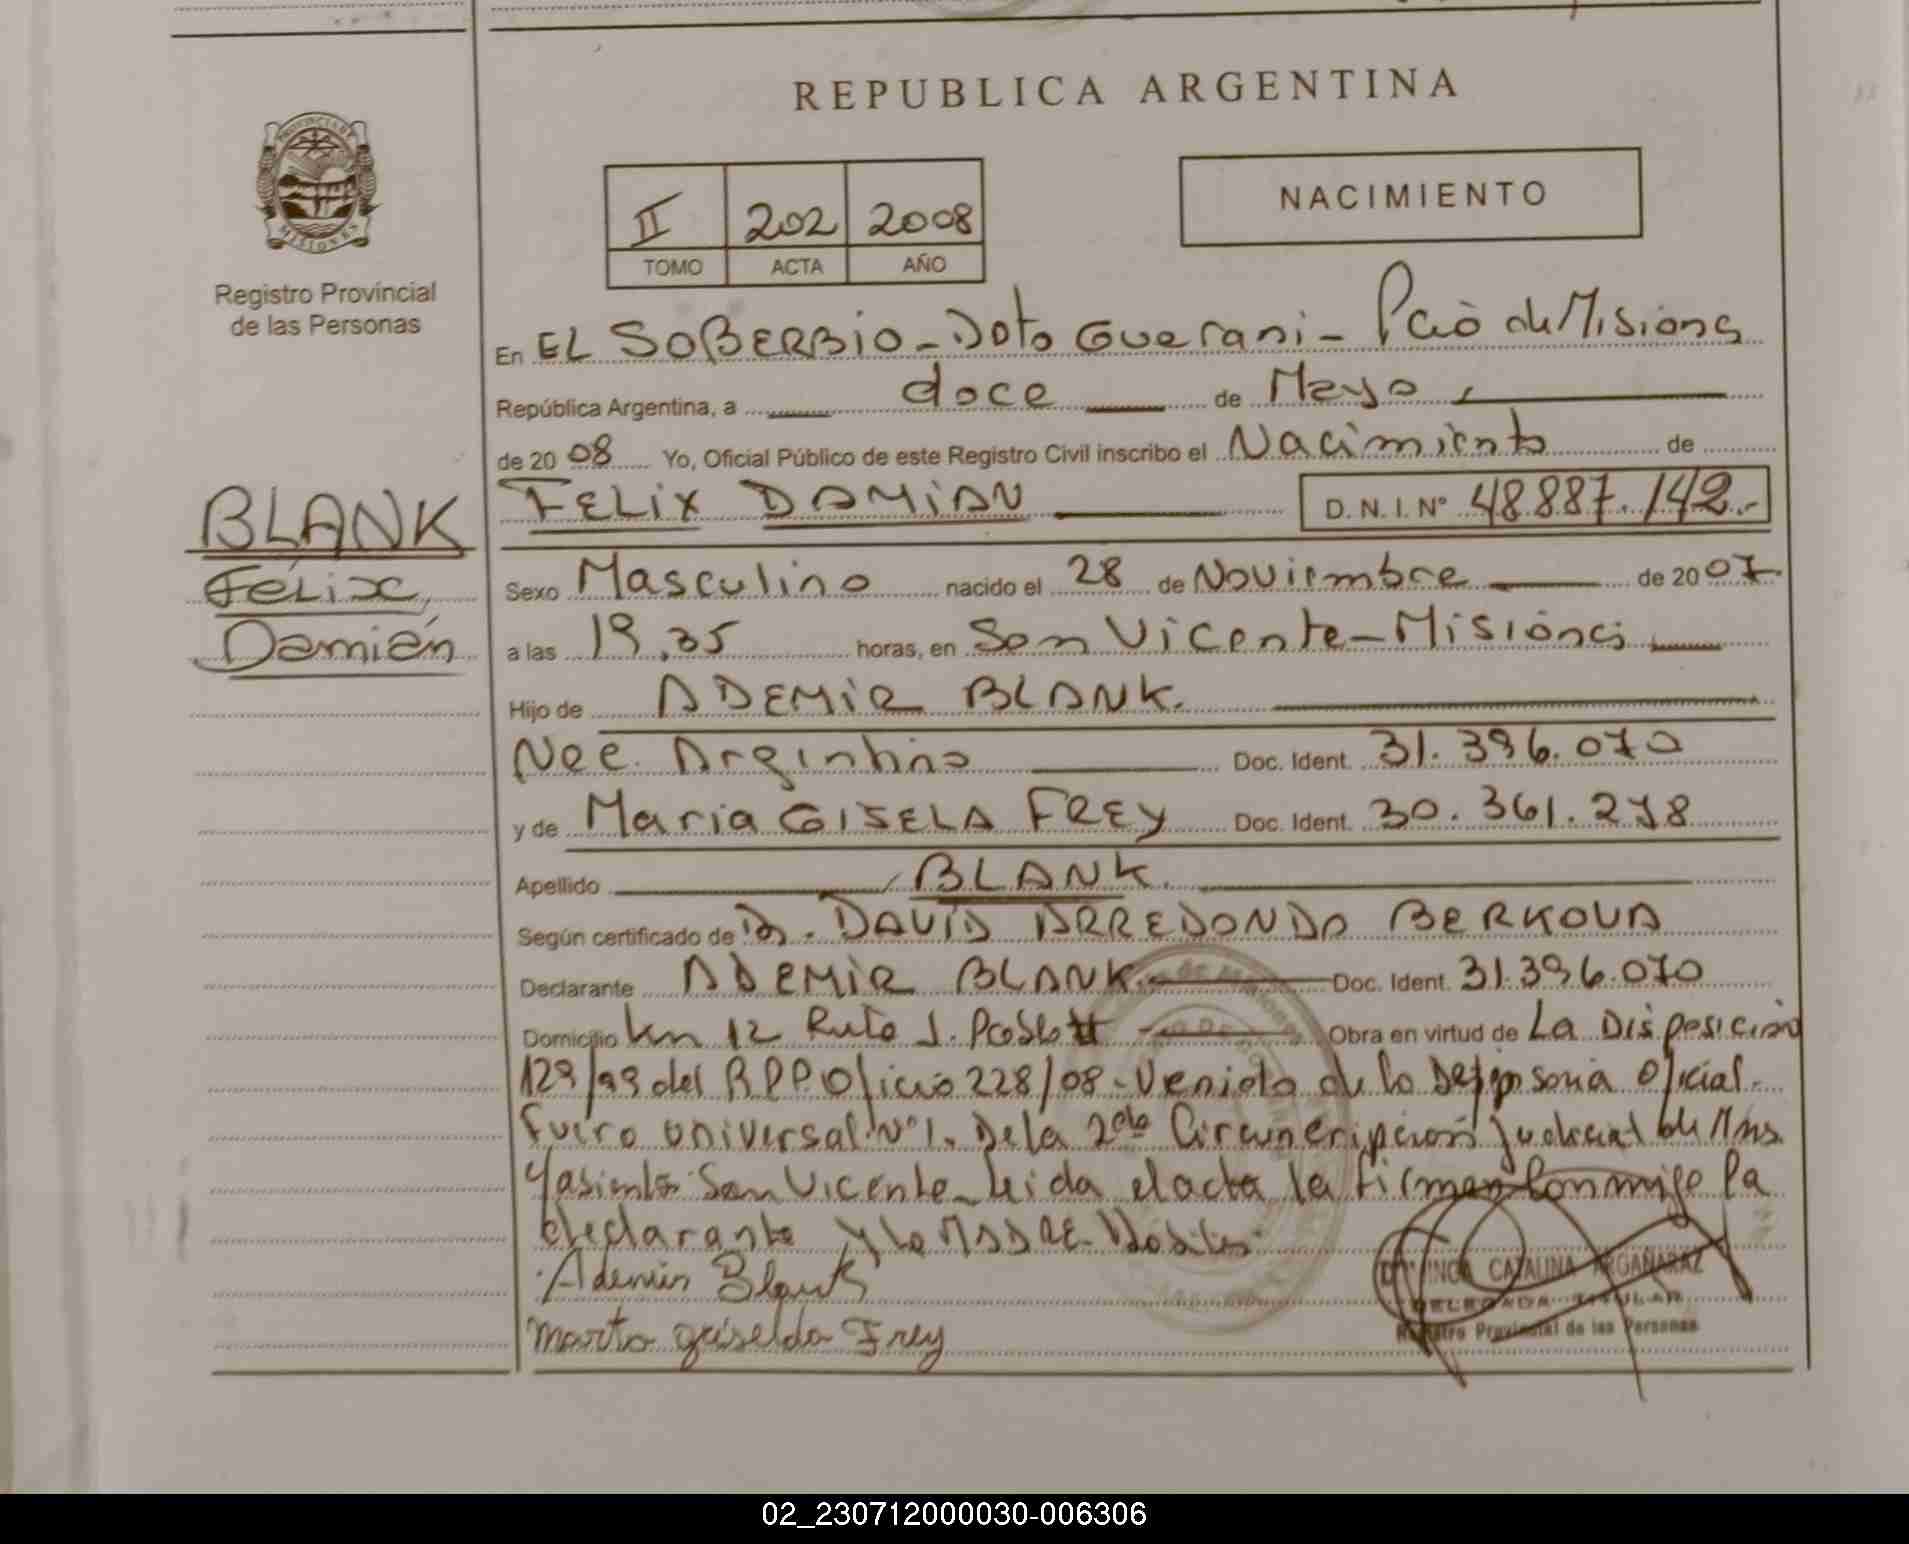 REPUBLICA ARGENTINA
PROVINCIA DE
MISIONES
Registro Provincial
de las Personas
II 202 2008
TOMO ACTA AÑO
NACIMIENTO
En EL SOBERBIO - Dpto Guarani - Pcia de Misiones
República Argentina, a doce de Mayo
de 2008 Yo, Oficial Público de este Registro Civil inscribo el Nacimiento de
BLANK
Félix
Damián
FELIX DAMIAN D.N.I. Nº 48.887.142.-
Sexo Masculino nacido el 28 de Noviembre de 2007
a las 19,35 horas, en San Vicente - Misiones
Hijo de ADEMIR BLANK.
Nac. Argentino Doc. Ident. 31.396.070
y de Maria GISELA FREY Doc. Ident. 30.361.278
Apellido BLANK.
Según certificado de Dr. DAVID ARREDONDO BERKOVA
Declarante ADEMIR BLANK. Doc. Ident. 31.396.070
Domicilio Km 12 Ruta Obra en virtud de La Disposicion
129/99 del RPP Oficio 228/08 - Venido de la Defensoria Oficial
Fuero Universal Nº 1. De la 2da Circunscripcion Judicial de Mnes
San Vicente - Leida el acta la firman conmigo la
declarante y la MADRE.
Ademir Blank
Marta Griselda Frey
CATALINA ARGAÑARAZ
DELEGADA TITULAR
Registro Provincial de las Personas
02_230712000030-006306